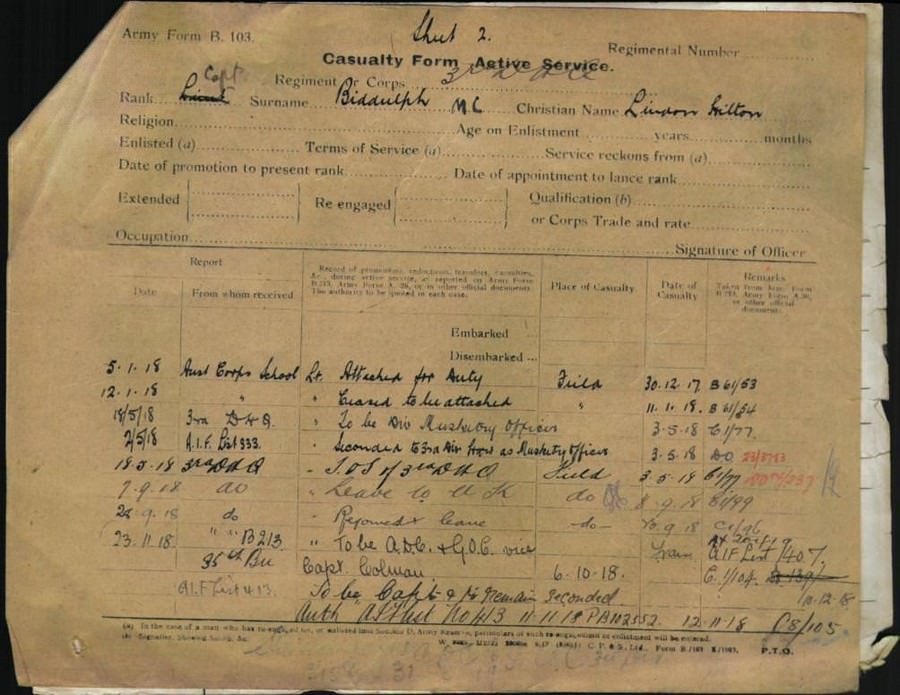 Sheet 2.
Army Form B. 103.
Regimental Number
Casualty Form Active Service.
Regiment or Corps
Rank Lieut Capt Surname Biddulph MC Christian Name Lindon Hilton
Religion Age on Enlistment years months
Enlisted (a) Terms of Service (a) Service reckons from (a)
Date of promotion to present rank Date of appointment to lance rank
Extended Re engaged Qualification (b)
or Corps Trade and rate
Occupation Signature of Officer
Report
Date From whom received
Record of promotions, reductions, transfers, casualties, &c., during active service, as reported on Army Form B.213, Army Form A. 36, or in other official documents. The authority to be quoted in each case.
Place of Casualty
Date of Casualty
Remarks
Taken from Army Form B.213, Army Form A.36, or other official documents.
Embarked
Disembarked ...
5.1.18 Aust Corps School Lt. Attached for Duty Field 30.12.17 B 61/53
12.1.18 " " Ceased to be attached " 11.1.18. B 61/54
18/5/18 3rd DHQ. " To be Div Musketry Officer 3.5.18 C1/77.
2/5/18 A.I.F. List 333. " Seconded to 3rd Div Hqrs as Musketry Officer 3.5.18 DO
18.5.18 3rd DHQ " T.O.S of 3rd DHQ Field 3.5.18 C1/77
7.9.18 do " Leave to UK do 8.9.18
28.9.18 do " Rejoined leave -do-
23.11.18. " " B213 " To be A.D.C. GOC vice
AIF List 407.
35th Bn Capt. Colman 6-10-18. C.1/104.
10.12.18
A.I.F List 413. To be Capt & to remain seconded
Auth AIF List No 413 11.11.18 12-11-18 C8/105
P.T.O.